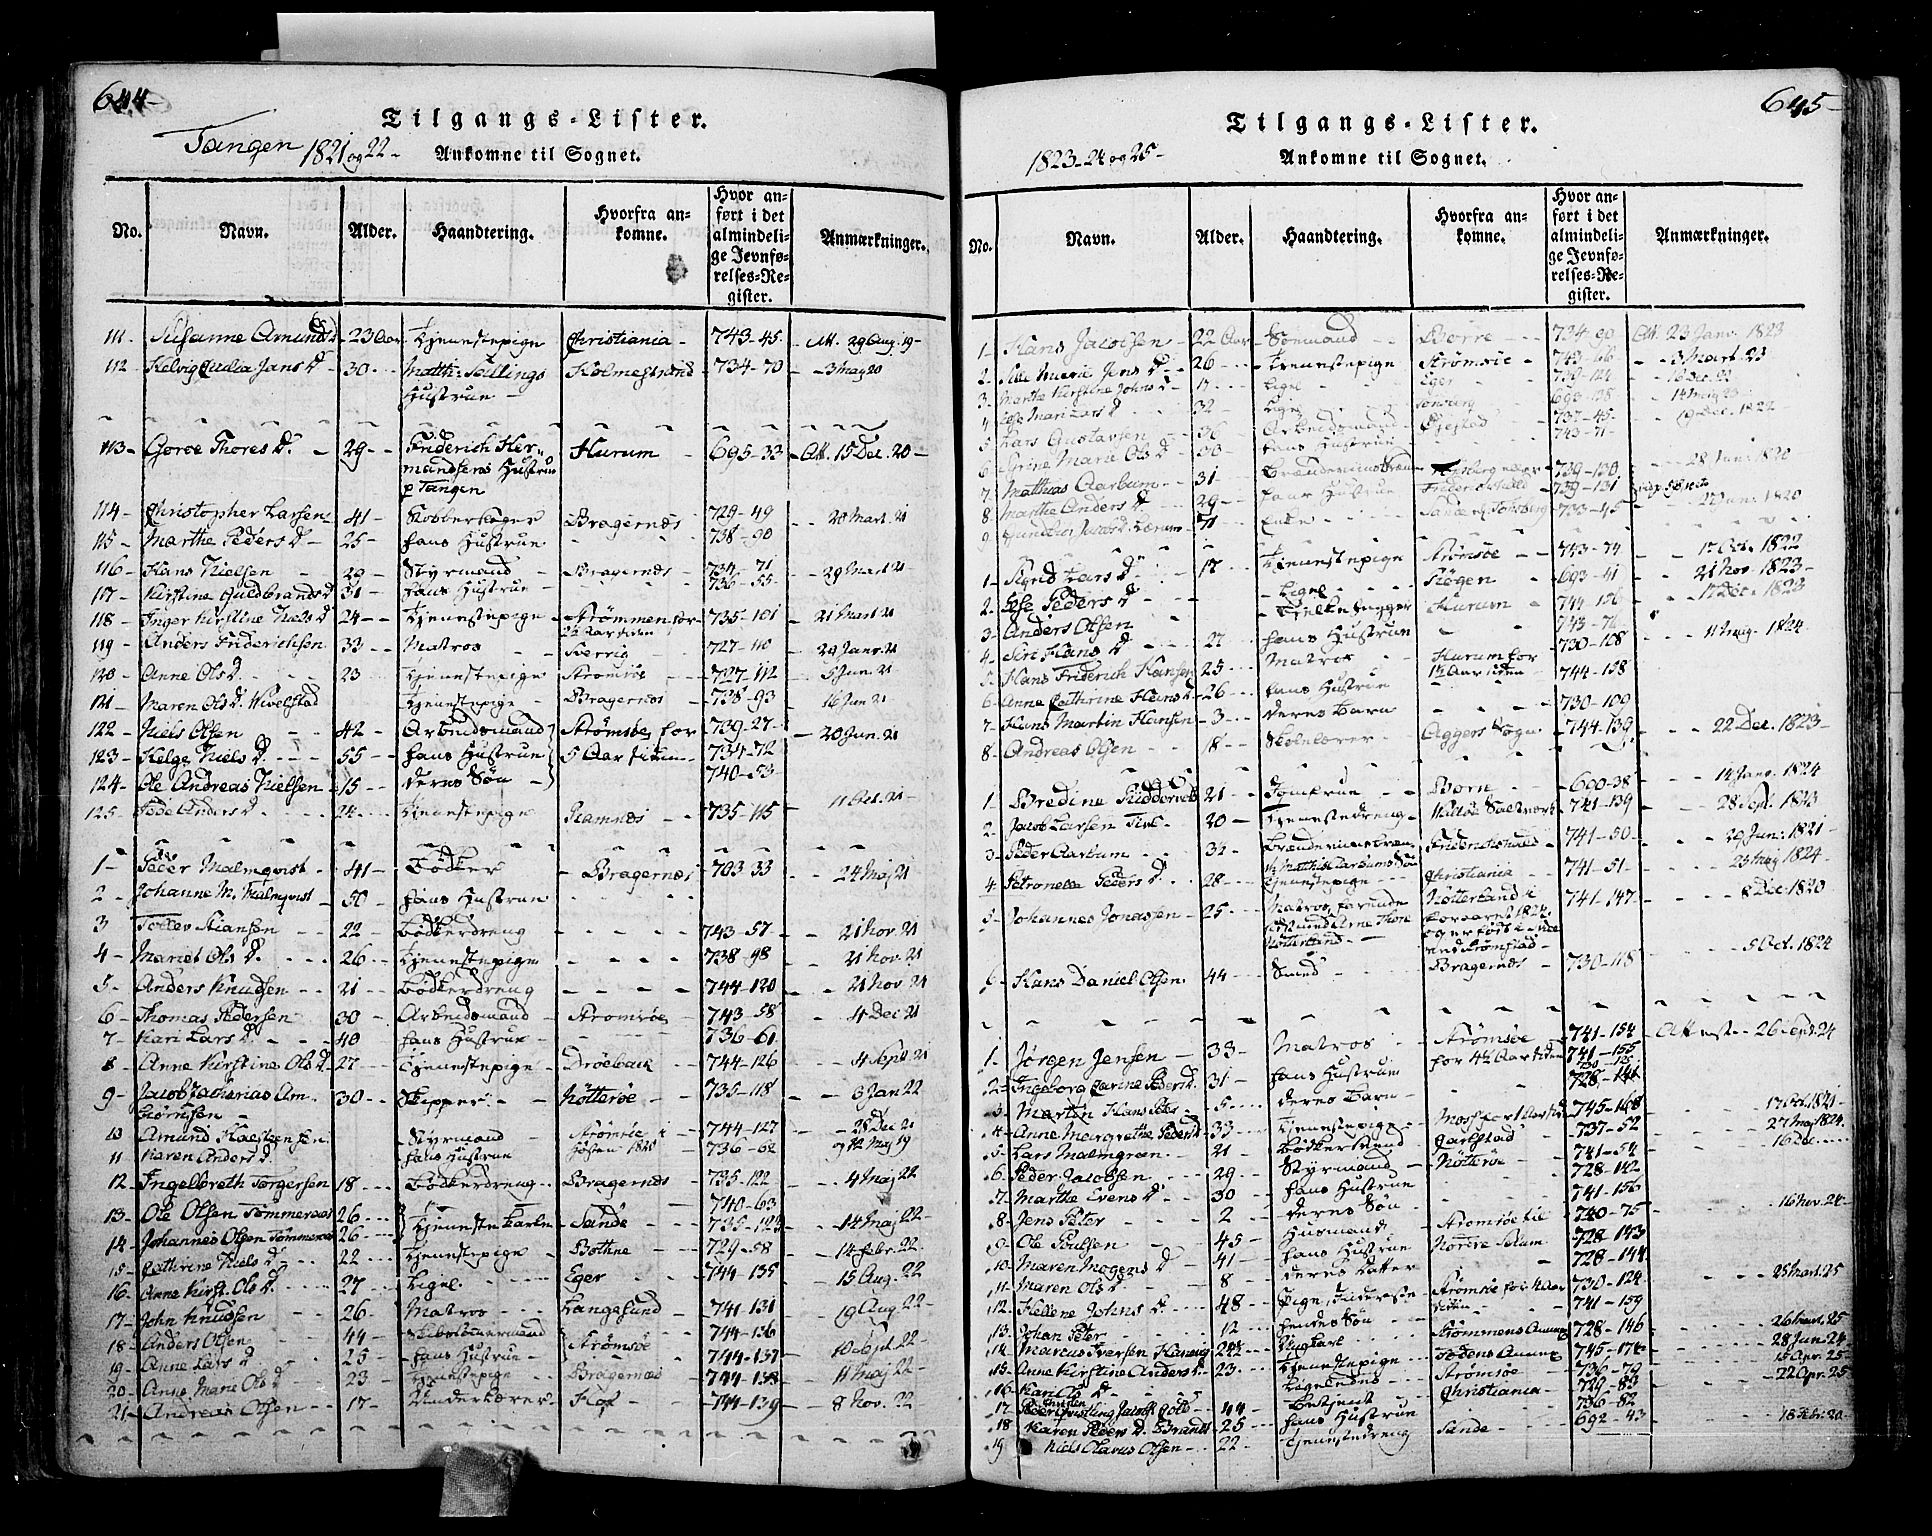 644-
Tilgangs-Lister.
Tangen 1821 og 22-
Ankomne til Sognet.
No. Navn. Alder. Haandtering. Hvorfra ankomne. Hvor anført i det almindelige Jevnførelses-Register. Anmærkninger.
111- Susanne Amunds d 23 Aar Tjenestepige Christiania- 743-45- Att. 29 Aug. 19-
112 Helvig Judia Jans D- 30- Matth: Hustrue- Holmestrand 734-70 -3 May 20
113- Goroe Thores D. 29- Friderich Hermandsens Hustrue p Tangen Hurum 695-33 Att. 15 Dec. 20-
114- Christopher Larsen- 41- Kobberslager Bragernæs 729-49 20 Mart. 21
115- Marthe Peders D- 25- hans Hustrue 738-90
116- Hans Nielsen 29- Styrmand Bragernæs 734-71 29 Mart 21
117- Kirstine Guldbrands D 31- hans Hustrue 736-55
118- Inger Kirstine Niels D 24- Tjenestepige Strømmen for 2½ Aar siden 735-101 21 Mart 21
119- Anders Friderichsen 33- Matros Sverrig 727-110 29 Janr. 21
120- Anne Ols D. 23 Tjenestepige Stromsøe 727-112 5 Jun 21
121- Maren Ols D. Hivelstad Tjenestepige Bragernæs 738-93 16 Jun 21
122- Niels Olsen 42- Arbeidsmand Strømsøe for 5 Aar siden 739-27- 20 Jun. 21
123- Helge Niels D. 55- hans Hustrue 734-72
124- Ole Andreas Nielsen 15- deres Søn 740-53
125- Anders D. 24- Tjenestepige Ramnæs 735-115 11 Oct. 21-
1- Peder Malmqvist- 41- Bødker Bragernæs 703-33 24 Maj 21
2- Johanne M. Malmqvist 50- hans Hustrue
3 Tollev Stiansen 22- Bødkerdreng 743-57- 21 Nov. 21
4- Mariet Ols D. 26- Tjenestepige 738-98 21 Nov. 21
5- Anders Knudsen 21- Bødkerdreng 744-120 21 Nov 21
6- Thomas Pedersen 30- Arbeidsmand Stromsøe 743-58 4 Dec 21
7- Kari Lars D. 40 hans Hustrue 736-61
8- Anne Kirstine Ols D- 27- Tjenestepige Drøebak 744-126 4 Sept 21
9- Jacob Zacharias Ambiørnsen- 30- Skipper Nøtterøe 735-118 6 Jan 22
10 Amund Halstensen Styrmand Strømsøe 744-127 28 Dec 21
11 Karen Anders D. hans Hustrue 1820 736-62 12 Maj 19
12- Ingelbreth Torgersen 18- Bødkerdreng Bragernæs 735-122 4 Maj 22
13- Ole Olsen Tømmeraas 26- Tjenestekarle Sande 740-63 14 Maj 22-
14- Johannes Olsen Tømmeraas 26- 735-123
15- Cathrine Niels D 22- Tjenestepige Bothne 729-58 14 Febr. 22
16- Anne Kirst. Ols D. 27- Ligel. Eger 744-135 15 Aug. 22
17- John Knudsen 26- Matros Langesund 741-131 19 Aug. 22-
18- Anders Olsen 44- Skibstømermand Strømsøe 744-136 10 Sept. 22-
19- Anne Lars D 25- hans Hustrue 744-137
20- Anne Marie Ols D 23- Tjenestepige Bragernæs 744-138 11 Maj 22
21- Andreas Olsen 17- Hof 744-139 8 Nov. 22
645-
Tilgangs-Lister.
1823-24 og 25-
Ankomne til Sognet.
No. Navn. Alder. Haandtering. Hvorfra ankomne. Hvor anført i det almindelige Jevnførelses-Register. Anmærkninger.
1- Hans Jacobsen 22 Aar Søemand Borre 734-90 Att. 23 Janr. 1823
2- Marie Jens D 26 Tjenestepige Strømsøe 743-66 3 Mart 23
3- Marthe Kirstine Johns D 17 Ligel Eger 739-124 16 Dec. 22
4 Mari Lars D 32 Ligel Tønsberg 693-138 14 Maj 23
5 Lars Gustavsen 36 Arbeidsmand 737-45- 19 Dec. 1822
6 Marie Ols D 30 hans Hustrue 743-71
7 Matthias Aarbum 31- Frederikshald 739-130 28 Jun: 1820
8 Marthe Anders D 29- hans Hustrue 739-131
9 71 Enke 733-45 1820
1- Sigrid Lars D 17 Tjenestepige Strømsøe 743-74 17 Oct. 1822
2- Else Peders D Ligel Skogen 693-41 21 Nov. 1823-
3- Anders Olsen Hurum 744-156 17 Dec. 1823
4- Siri Hans D 27 hans Hustrue 743-76
5- Hans Friderich Hansen 25- Matros Hurum for 1½ Aar siden 730-108 11 Maj 1824
6- Anne Cathrine Hans D 26 hans Hustrue 744-158
7- Hans Martin Hansen 3 deres Barn 730-109
8- Andreas Olsen 18- Skolelærer Aggers Sogn 744-139 22 Dec. 1823-
1- Bredine Ridderv 21- Jomfrue Born 600-38 14 Janr. 1824
2- Jacob Larsen 20- Tjenestedreng 741-139 28 Sept. 1823
3- Peder Aarbum 32- Frederikshald 741-50 29 Jun: 1821-
4- Petronelle Peders D. 28- Tjenestepige Christiania 741-51- 23 Maj 1824-
5- Johannes Jonassen 25- Matros Nøtterland 741-147- 8 Dec. 1820
6- Hans Daniel Olsen 44 Smed Bragernæs 730-118 5 Oct. 1824
1- Jørgen Jensen 33- Matros Strømsøe for 4½ Aar siden 741-154 Attest- 26 Sept. 24
2- Ingeborg Carine Peders D 31- hans Hustrue 741-155
3- Martin Hans Peter 5- deres Barn 728-141
4- Anne Margrethe Peders D 33- Tjenestepige Moss for 1 Aar sid 745-168 17 Oct. 1821
5- Lars Malmgreen 21- Bødkersvend Carlstad 737-52 27 Maj 1824
6- Peder Jacobsen 29- Styrmand Nøtterøe 741-54 16 Dec.
7- Marthe Evens D 30- hans Hustrue 728-142
8- Jens Peter 2 deres Søn 741-156
9- Ole Poulsen 45- Husmand Strømsøe til Nordre 740-75 16 Nov. 24-
10- Maren Mogens D 41- hans Hustrue 728-143
11- Maren Ols D 8- deres Datter 728-144
12- Hellene Johns D 48- Pige, Strømsøe for 4 Aar siden 730-124 25 Mart. 25
13- Johan Peter 12- hendes Søn 741-159
14- Marcus Iversen 22- Ungkarl Strømmens Annex 728-146 26 Mart. 25
15- Anne Kirstine Anders D. 23- Tjenestepige Annex 745-174 28 Jun. 24
16- Kari Ols D Ligeledes Strømsøe 736-79 15 Apr. 25-
17- 44 Betjent Christiania 729-83 22 Apr. 25
18 Karen Peders D. Brandt 25 hans Hustrue 736-82
19 Niels Olavus Olsen 22- Tjenestedreng Sande 692-43 18 Febr. 20